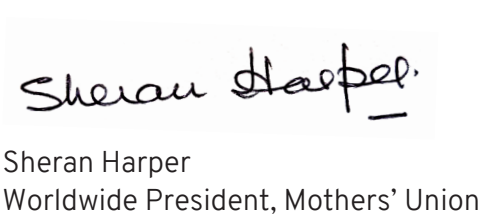 Sheran Harper.
Sheran Harper
Worldwide President, Mothers’ Union